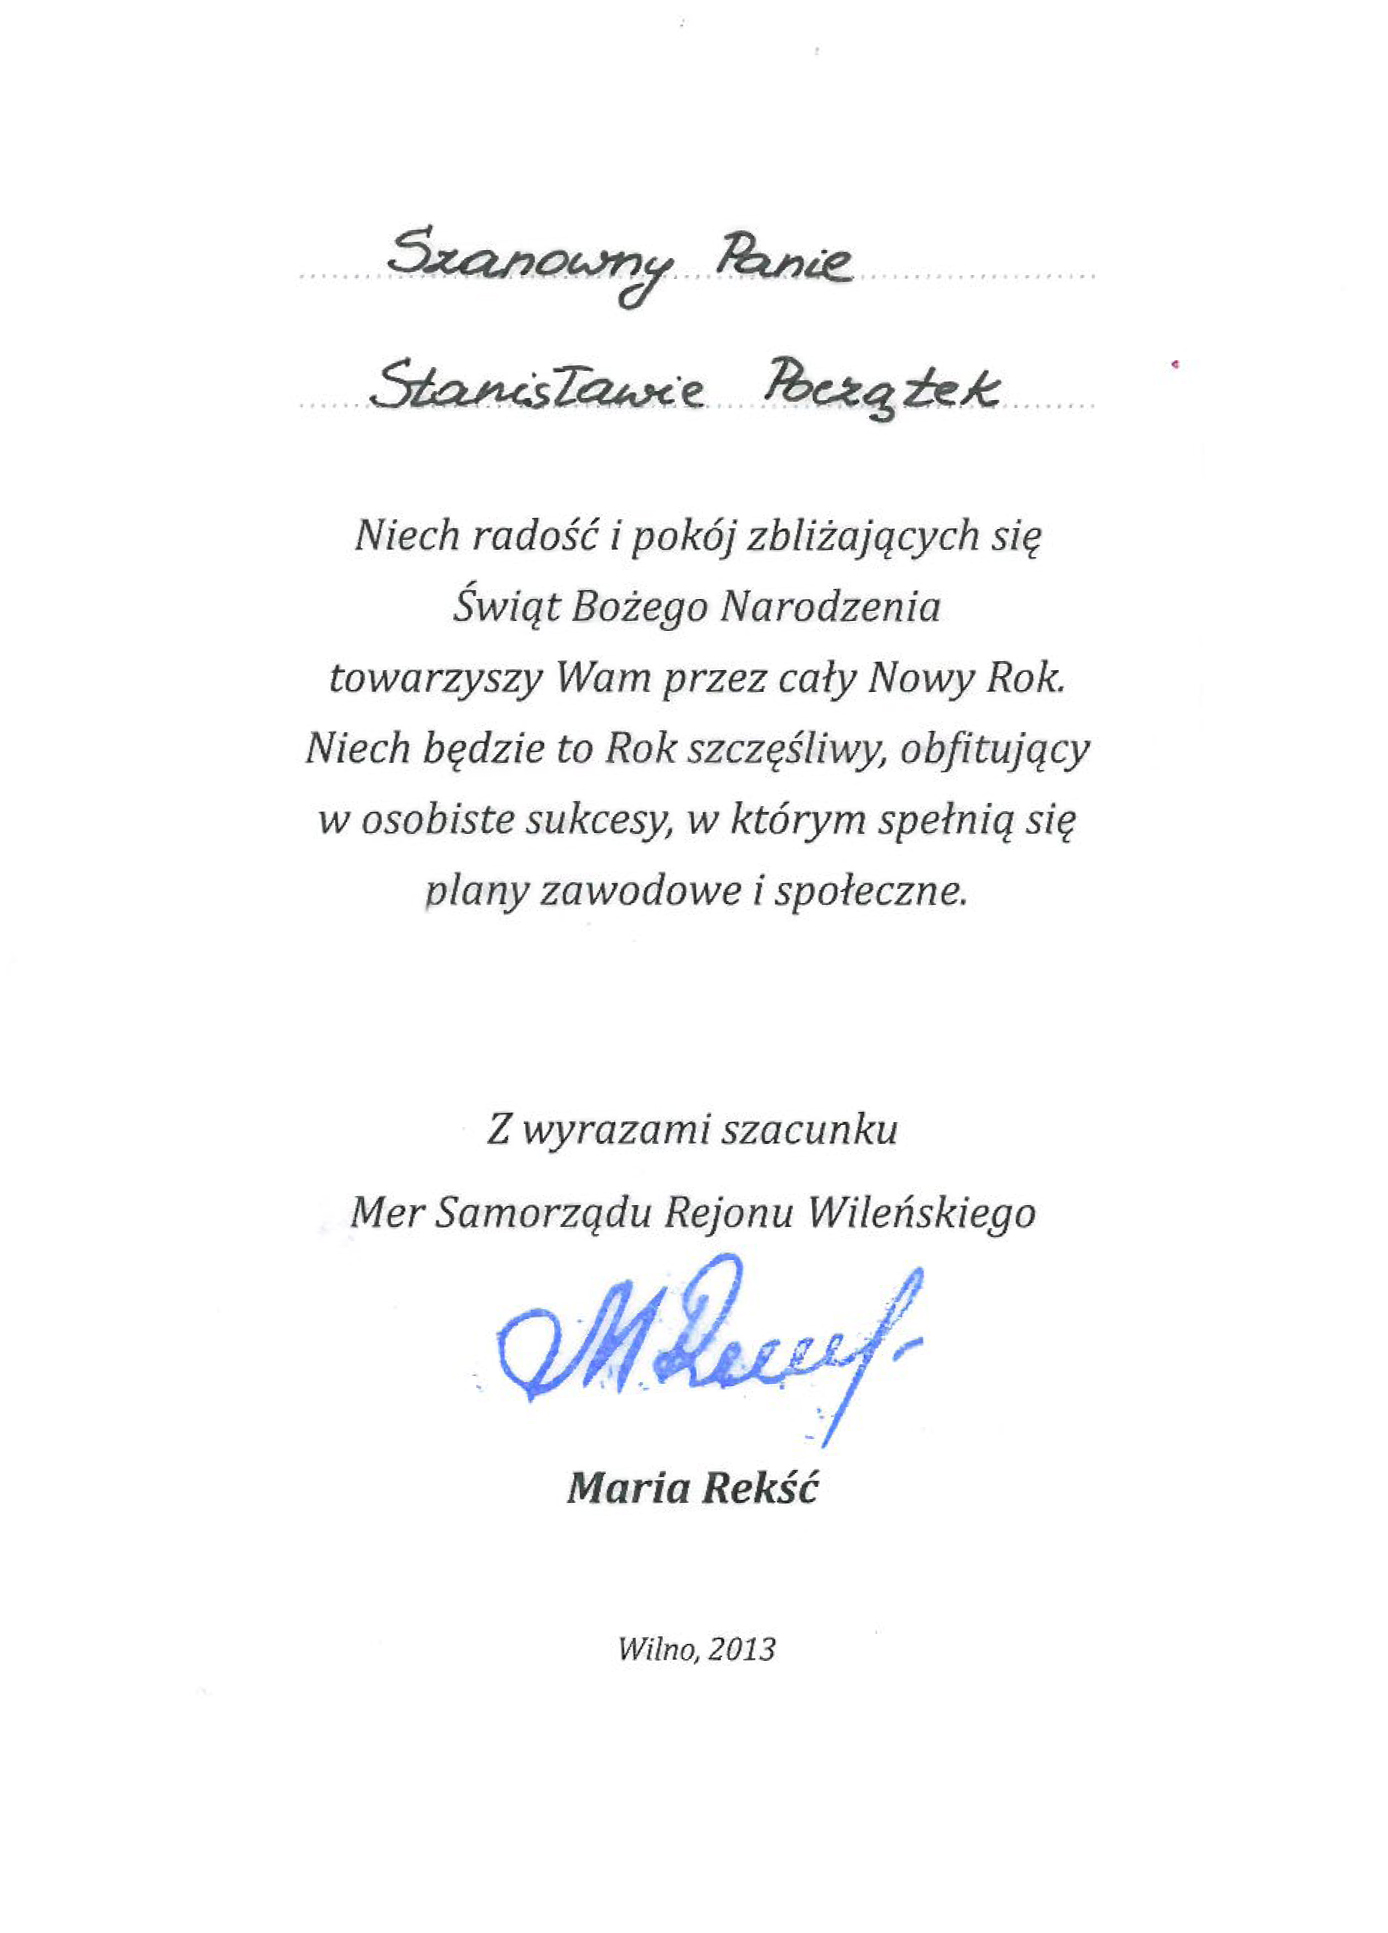 Szanowny Panie
Stanisławie Początek
Niech radość i pokój zbliżających się
Świąt Bożego Narodzenia
towarzyszy Wam przez cały Nowy Rok.
Niech będzie to Rok szczęśliwy, obfitujący
w osobiste sukcesy, w którym spełnią się
plany zawodowe i społeczne.
Z wyrazami szacunku
Mer Samorządu Rejonu Wileńskiego
Maria Rekść
Wilno, 2013